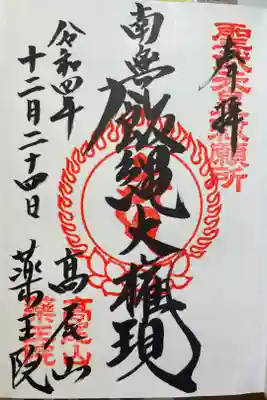 聖武天皇勅願所
奉拝
南無飯縄大權現
令和四年
十二月二十四日
高尾山
薬王院
高尾山
薬王院